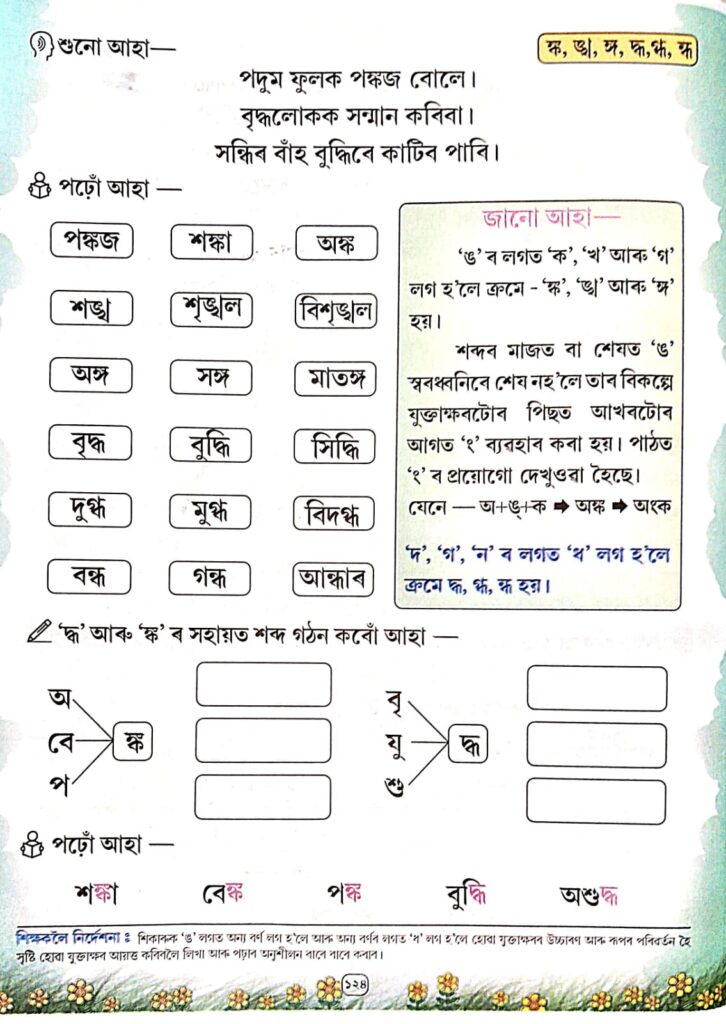 শুনো আহা—
ঙ্ক, ঙ্খ, ঙ্গ, দ্ধ, গ্ধ, ন্ধ
পদুম ফুলক পঙ্কজ বোলে।
বৃদ্ধলোকক সন্মান কৰিবা।
সন্ধিৰ বাঁহ বুদ্ধিৰে কাটিব পাৰি।
পঢ়োঁ আহা —
পঙ্কজ শঙ্কা অঙ্ক
শঙ্খ শৃঙ্খল বিশৃঙ্খল
অঙ্গ সঙ্গ মাতঙ্গ
বৃদ্ধ বুদ্ধি সিদ্ধি
দুগ্ধ মুগ্ধ বিদগ্ধ
বন্ধ গন্ধ আন্ধাৰ
জানো আহা—
‘ঙ’ ৰ লগত ‘ক’, ‘খ’ আৰু ‘গ’
লগ হ’লে ক্ৰমে - ‘ঙ্ক’, ‘ঙ্খ’ আৰু ‘ঙ্গ’
হয়।
শব্দৰ মাজত বা শেষত ‘ঙ’
স্বৰধ্বনিৰে শেষ নহ’লে তাৰ বিকল্পে
যুক্তাক্ষৰটোৰ পিছত আখৰটোৰ
আগত ‘ং’ ব্যৱহাৰ কৰা হয়। পাঠত
‘ং’ ৰ প্ৰয়োগো দেখুওৱা হৈছে।
যেনে — অ+ঙ্+ক ➡ অঙ্ক ➡ অংক
‘দ’, ‘গ’, ‘ন’ ৰ লগত ‘ধ’ লগ হ’লে
ক্ৰমে দ্ধ, গ্ধ, ন্ধ হয়।
‘দ্ধ’ আৰু ‘ঙ্ক’ ৰ সহায়ত শব্দ গঠন কৰোঁ আহা —
অ বৃ
বে ঙ্ক যু দ্ধ
প শু
পঢ়োঁ আহা —
শঙ্কা বেঙ্ক পঙ্ক বুদ্ধি অশুদ্ধ
শিক্ষকলৈ নিৰ্দেশনা : শিকাৰুক ‘ঙ’ লগত অন্য বৰ্ণ লগ হ’লে আৰু অন্য বৰ্ণৰ লগত ‘ধ’ লগ হ’লে হোৱা যুক্তাক্ষৰৰ উচ্চাৰণ আৰু ৰূপৰ পৰিবৰ্তন হৈ
সৃষ্টি হোৱা যুক্তাক্ষৰ আয়ত্ত কৰিবলৈ লিখা আৰু পঢ়াৰ অনুশীলন বাৰে বাৰে কৰাব।
১২৪